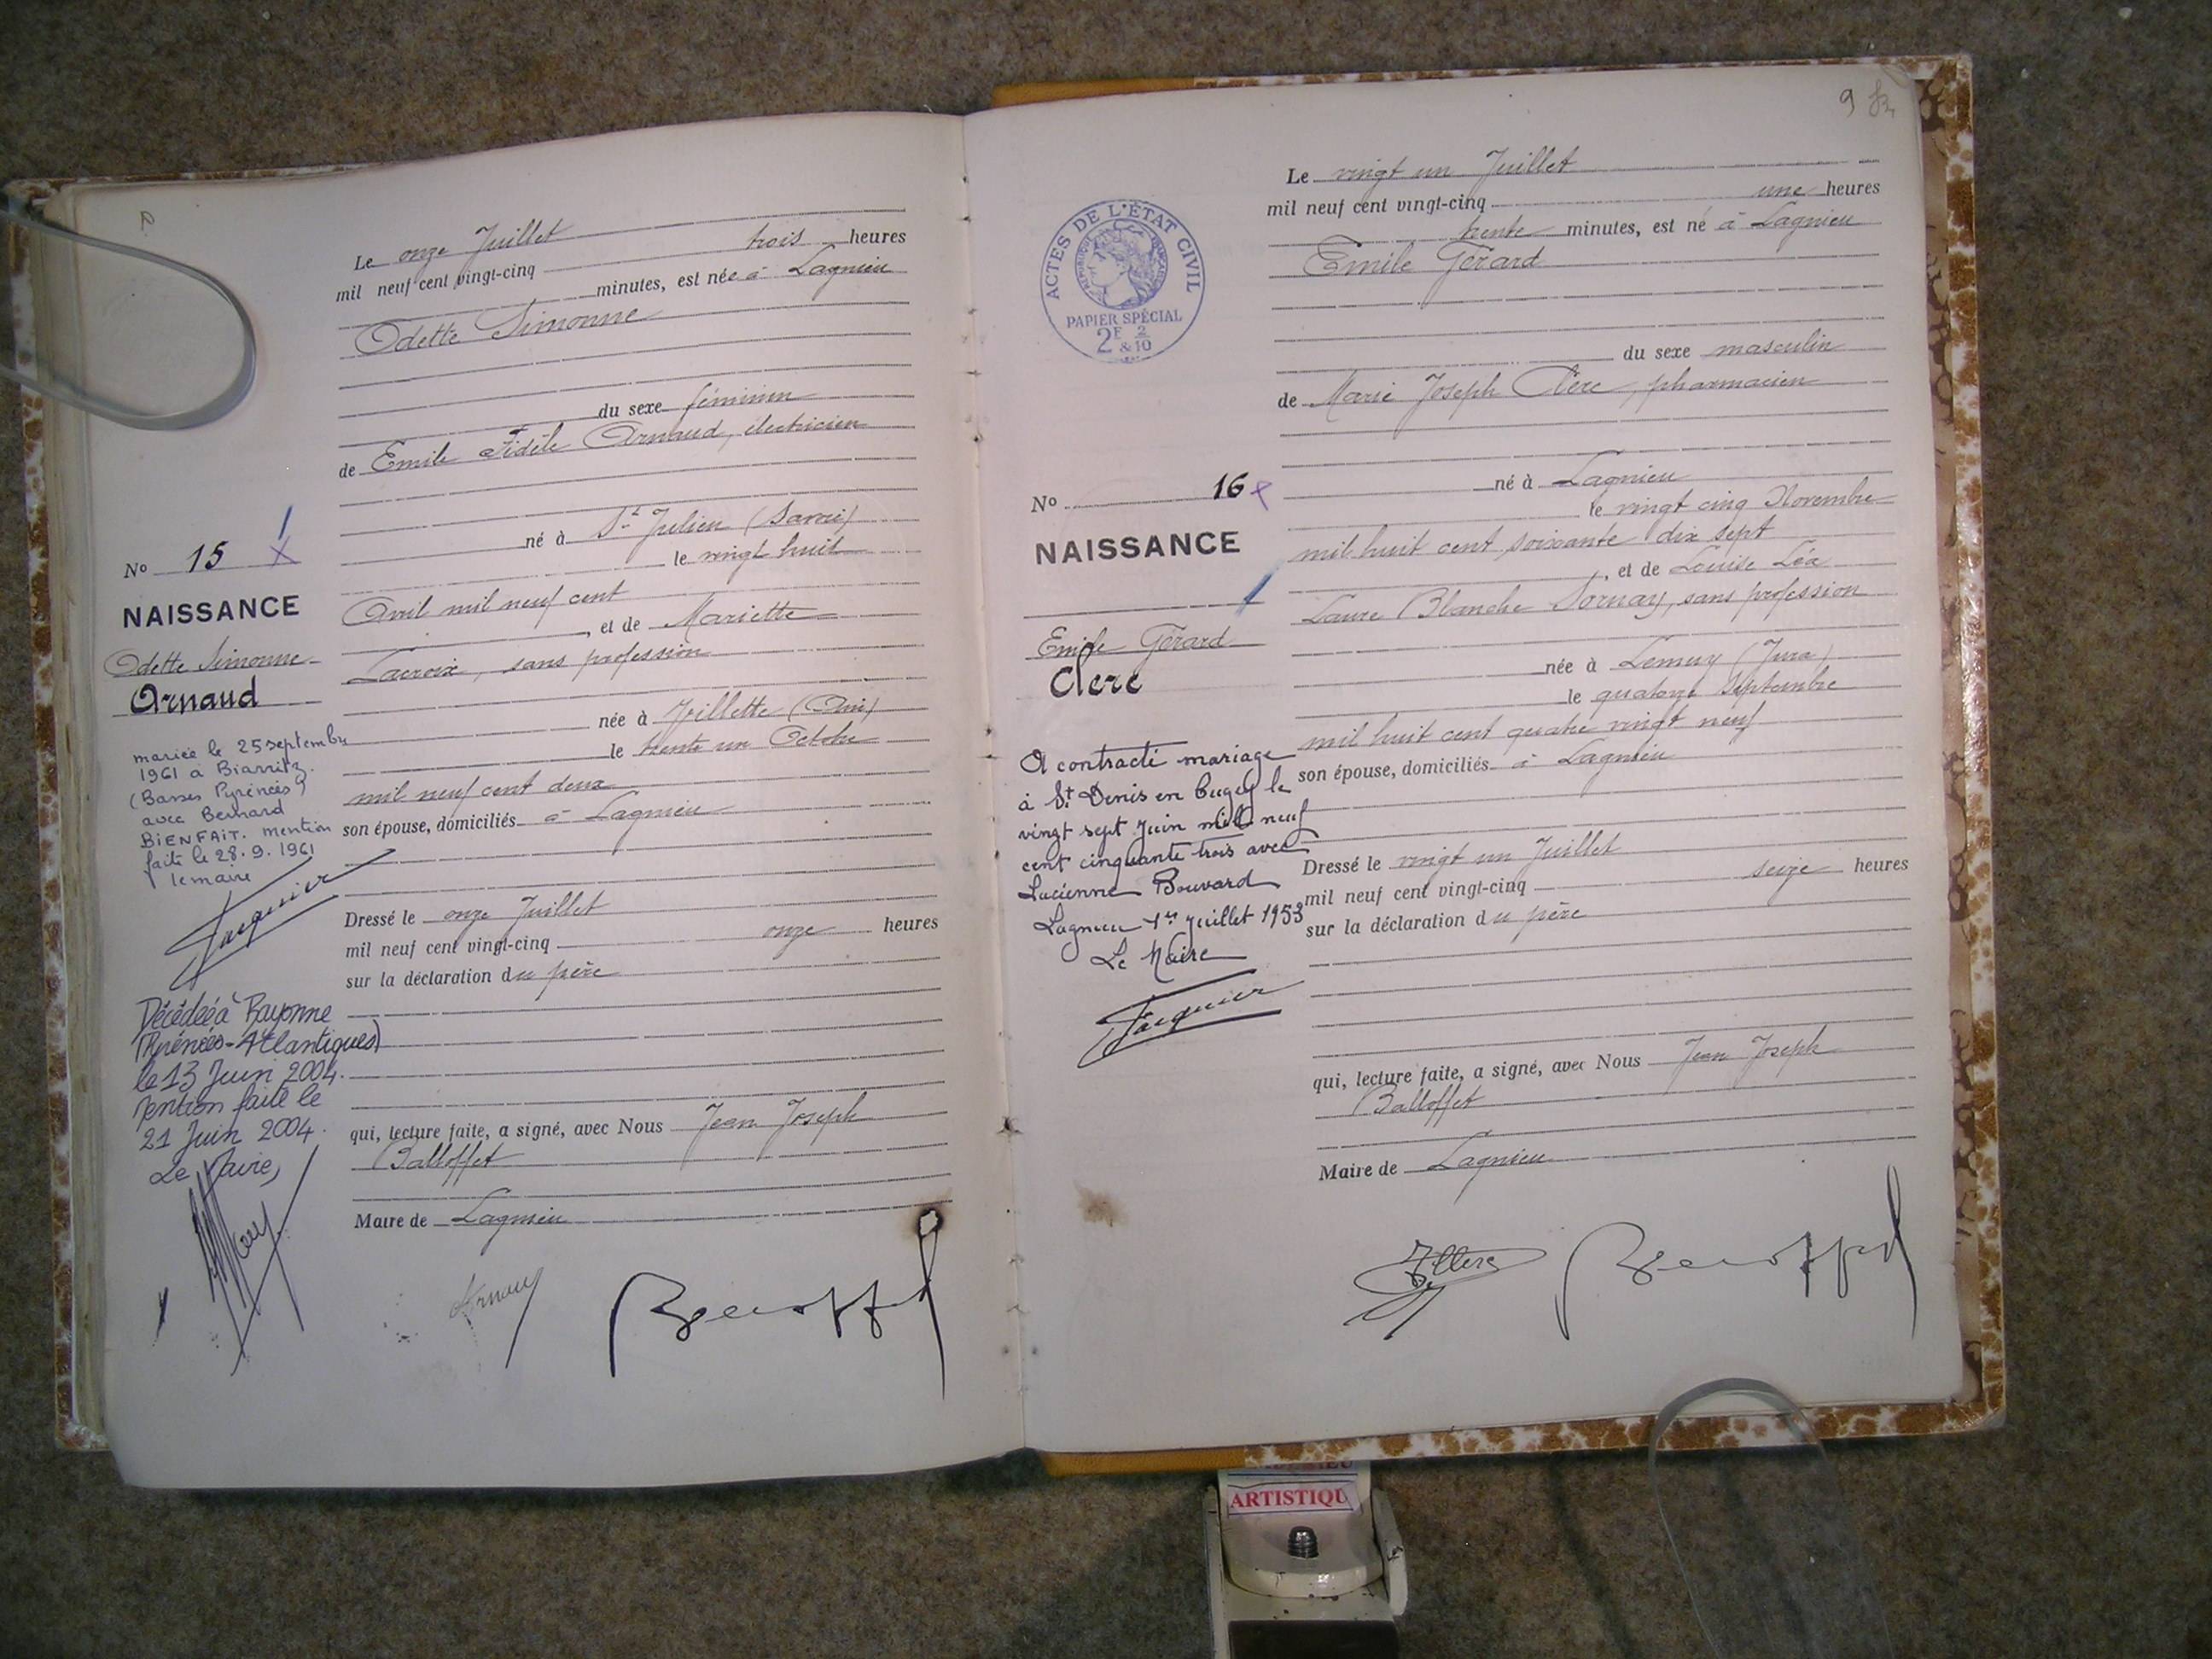 Le onze Juillet
mil neuf cent vingt-cinq trois heures
minutes, est née à Lagnieu
Odette Simonne
du sexe féminin
de Emile Fidèle Arnaud, électricien
né à St Julien (Savoie)
le vingt huit
Avril mil neuf cent
, et de Mariette
Lacroix, sans profession
née à Villette (Ain)
le trente un Octobre
mil neuf cent deux
son épouse, domiciliés à Lagnieu
Dressé le onze Juillet
mil neuf cent vingt-cinq onze heures
sur la déclaration du père
qui, lecture faite, a signé, avec Nous Jean Joseph
Balloffet
Maire de Lagnieu
No 15
NAISSANCE
Odette Simonne
Arnaud
mariée le 25 septembre
1961 à Biarritz
(Basses Pyrénées)
avec Bernard
BIENFAIT. mention
faite le 28.9.1961
le maire
Décédée à Bayonne
(Pyrénées-Atlantiques)
le 13 Juin 2004.
Mention faite le
21 Juin 2004.
Le Maire,
Arnaud
Balloffet
9
Le vingt un Juillet
mil neuf cent vingt-cinq une heures
trente minutes, est né à Lagnieu
Emile Gérard
du sexe masculin
de Marie Joseph Clerc, pharmacien
né à Lagnieu
le vingt cinq Novembre
mil huit cent soixante dix sept
, et de Louise Léa
Laure Blanche Sornay, sans profession
née à Lemuy (Jura)
le quatorze Septembre
mil huit cent quatre vingt neuf
son épouse, domiciliés à Lagnieu
Dressé le vingt un Juillet
mil neuf cent vingt-cinq seize heures
sur la déclaration du père
qui, lecture faite, a signé, avec Nous Jean Joseph
Balloffet
Maire de Lagnieu
ACTES DE L'ÉTAT CIVIL
RÉPUBLIQUE FRANÇAISE
PAPIER SPÉCIAL
2F & 2/10
No 16
NAISSANCE
Emile Gérard
Clerc
A contracté mariage
à St Denis en bugey le
vingt sept Juin mil neuf
cent cinquante trois avec
Lucienne Bouvard
Lagnieu 1er Juillet 1953
Le Maire
Balloffet
ARTISTIQU